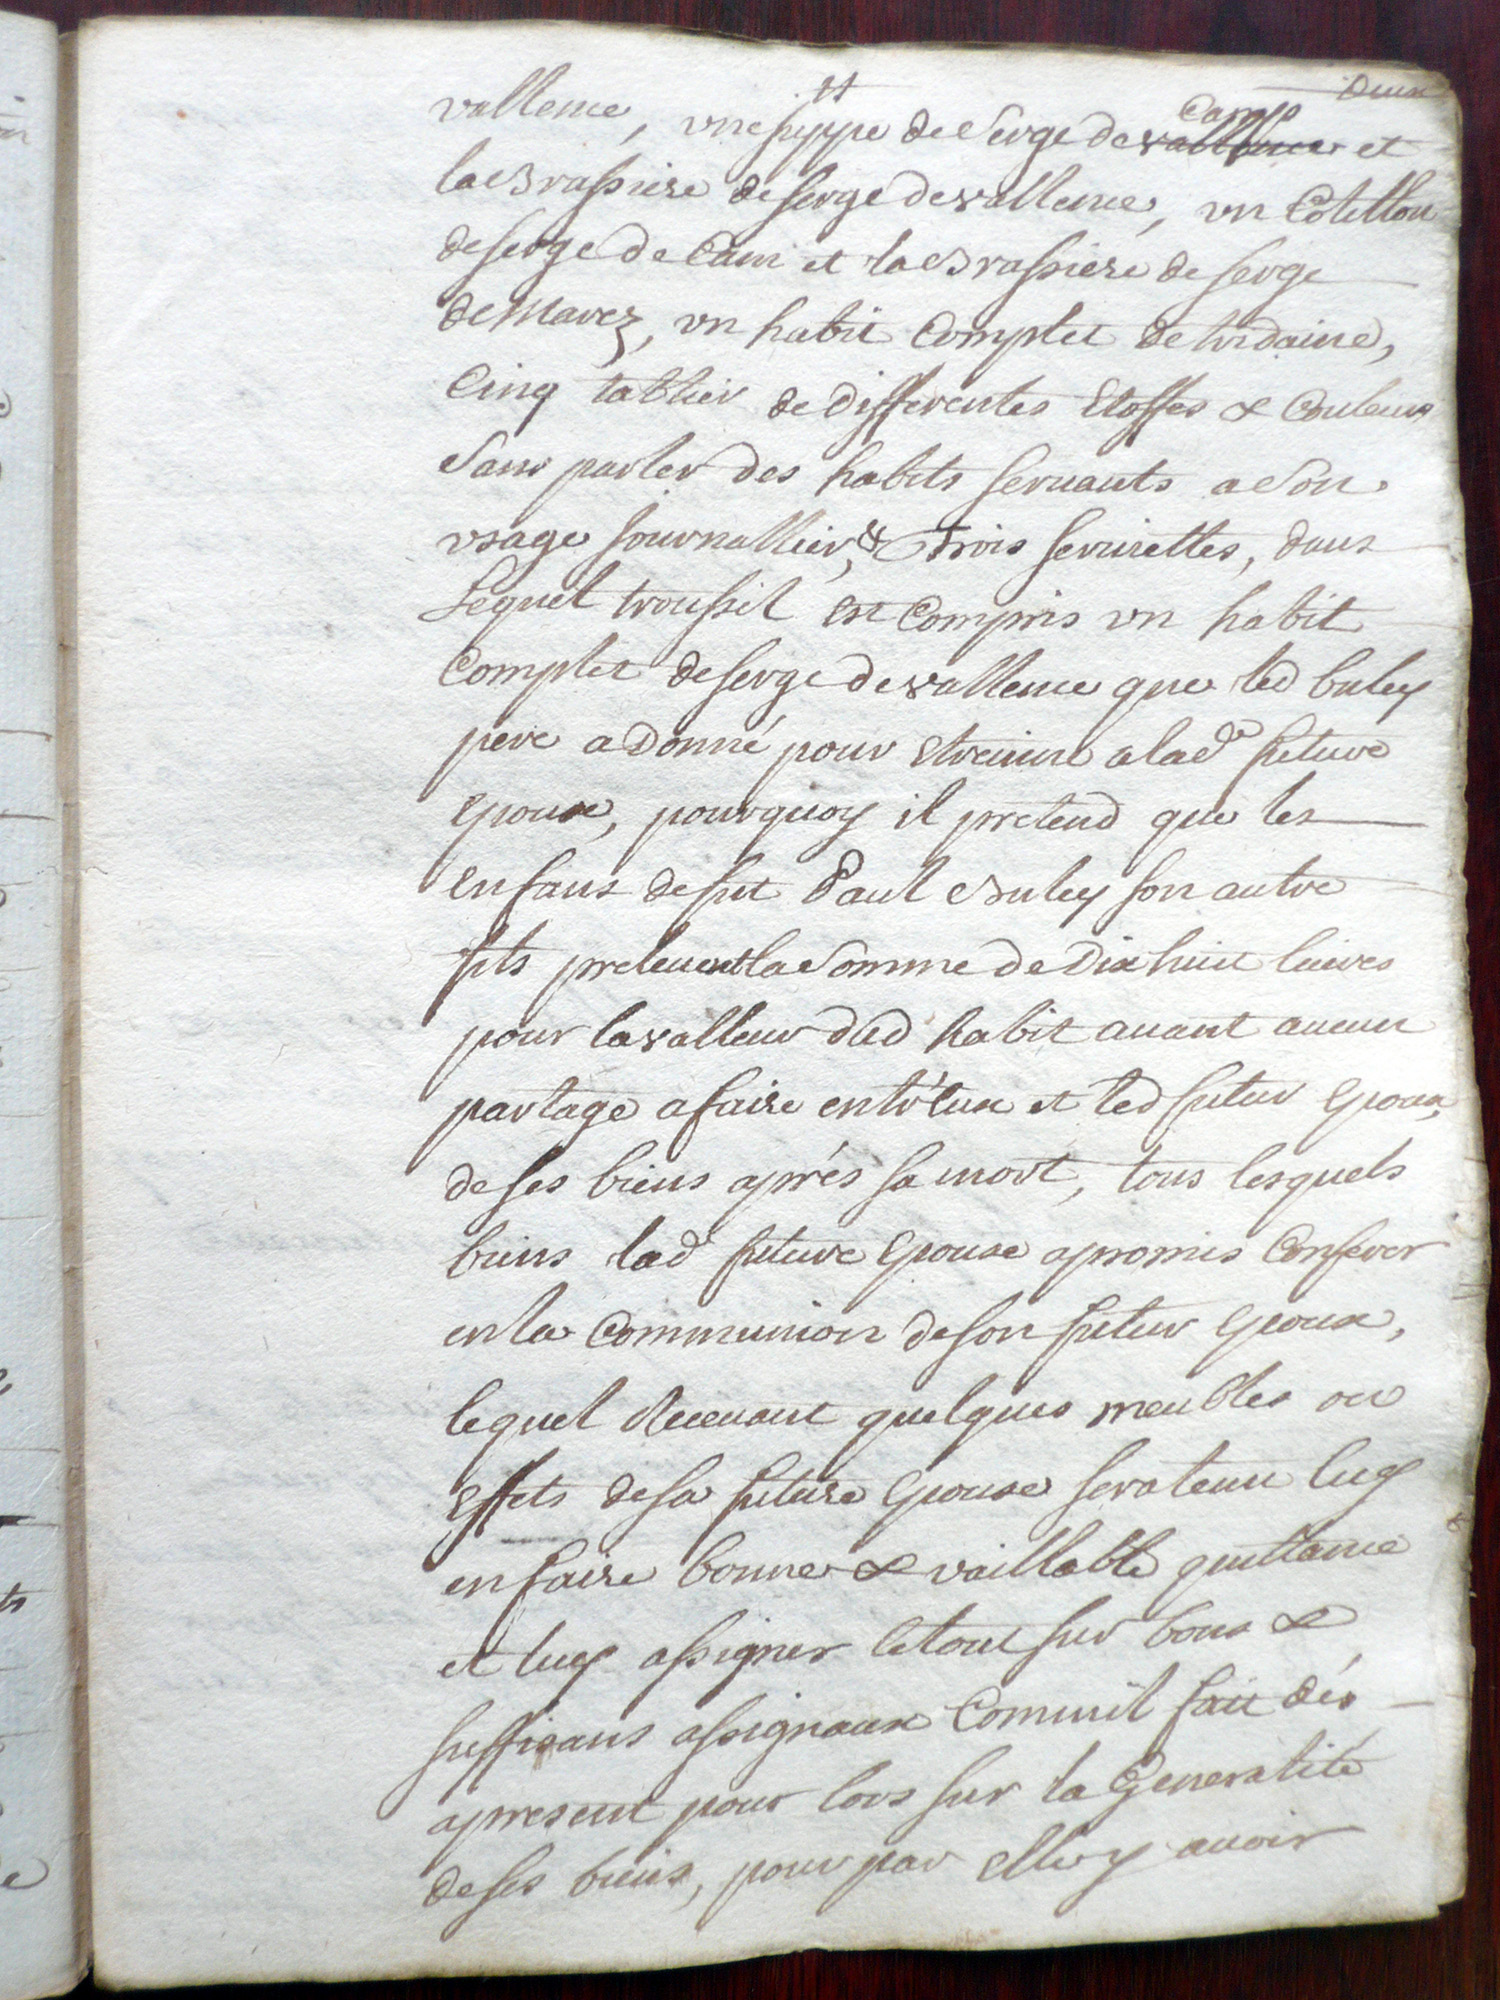 Deux
vallence, une juppe de Serge de Camp vallence et
la Brassiere de serge de vallence, un Cotillon
de serge de Caen et la Brassiere de serge
de Marez, un habit Complet de tirdaine,
Cinq tablier de differentes Etoffes & Couleurs
Sans parler des habits servants a Son
usage journallier, & Trois serviettes, dans
Lequel troussel est Compris un habit
Complet de serge de vallence que led buley
pere a donné pour Etreinne a lade future
Epouse, pourquoy il pretend que les
enfans de fut Paul Buley son autre
fils prelevent la Somme de Dix huit livres
pour la valleur dud habit avant aucun
partage a faire entr'eux et led futur Epoux,
de ses biens aprés sa mort, tous lesquels
biens lade future Epouse a promis Conferer
en la Communion de son futur Epoux,
lequel Recevant quelques meubles ou
Effets de sa future Epouse sera tenu luy
en faire bonne & vaillable quittance
et luy assigner le tout sur bons &
suffisans assignaux Comm'il fait dés
apresent pour lors sur la Generalité
de ses biens, pour par Elle y avoir